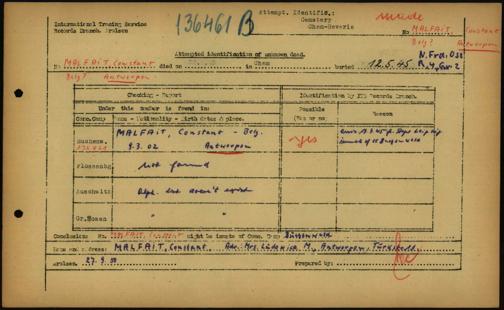 International Tracing Service
Records Branch Arolsen
136461 B
Attempt. Identific.:
Cemetery
Cham-Bavaria
made
No MALFAIT, Constant
Belg? Antwerpen
N. Frdh. 088
R. 4, Gr. 2
Attempted identification of unknown dead.
No MALFAIT Constant died on Cham buried 12.5.45
Belg? Antwerpen
Checking - Report
Identification by ITS Records Branch.
Under this number is found in:
Possible
(Yes or no)
Reason
Conc.Camp Name - Nationality - Birth dates & place.
Buchenw. MALFAIT, Constant - Belg.
136461 9.3.02 Antwerpen
yes
Flossenbg. not found
Auschwitz Alph. list doesn't exist
Gr.Rosen " "
Conclusion: No. MALFAIT, Constant might be inmate of Conc. Camp Buggenwald
Name and address: MALFAIT, Constant. Adr. Mrs. Ludwich M., Antwerpen,
Arolsen: 27.9.50 Prepared by: